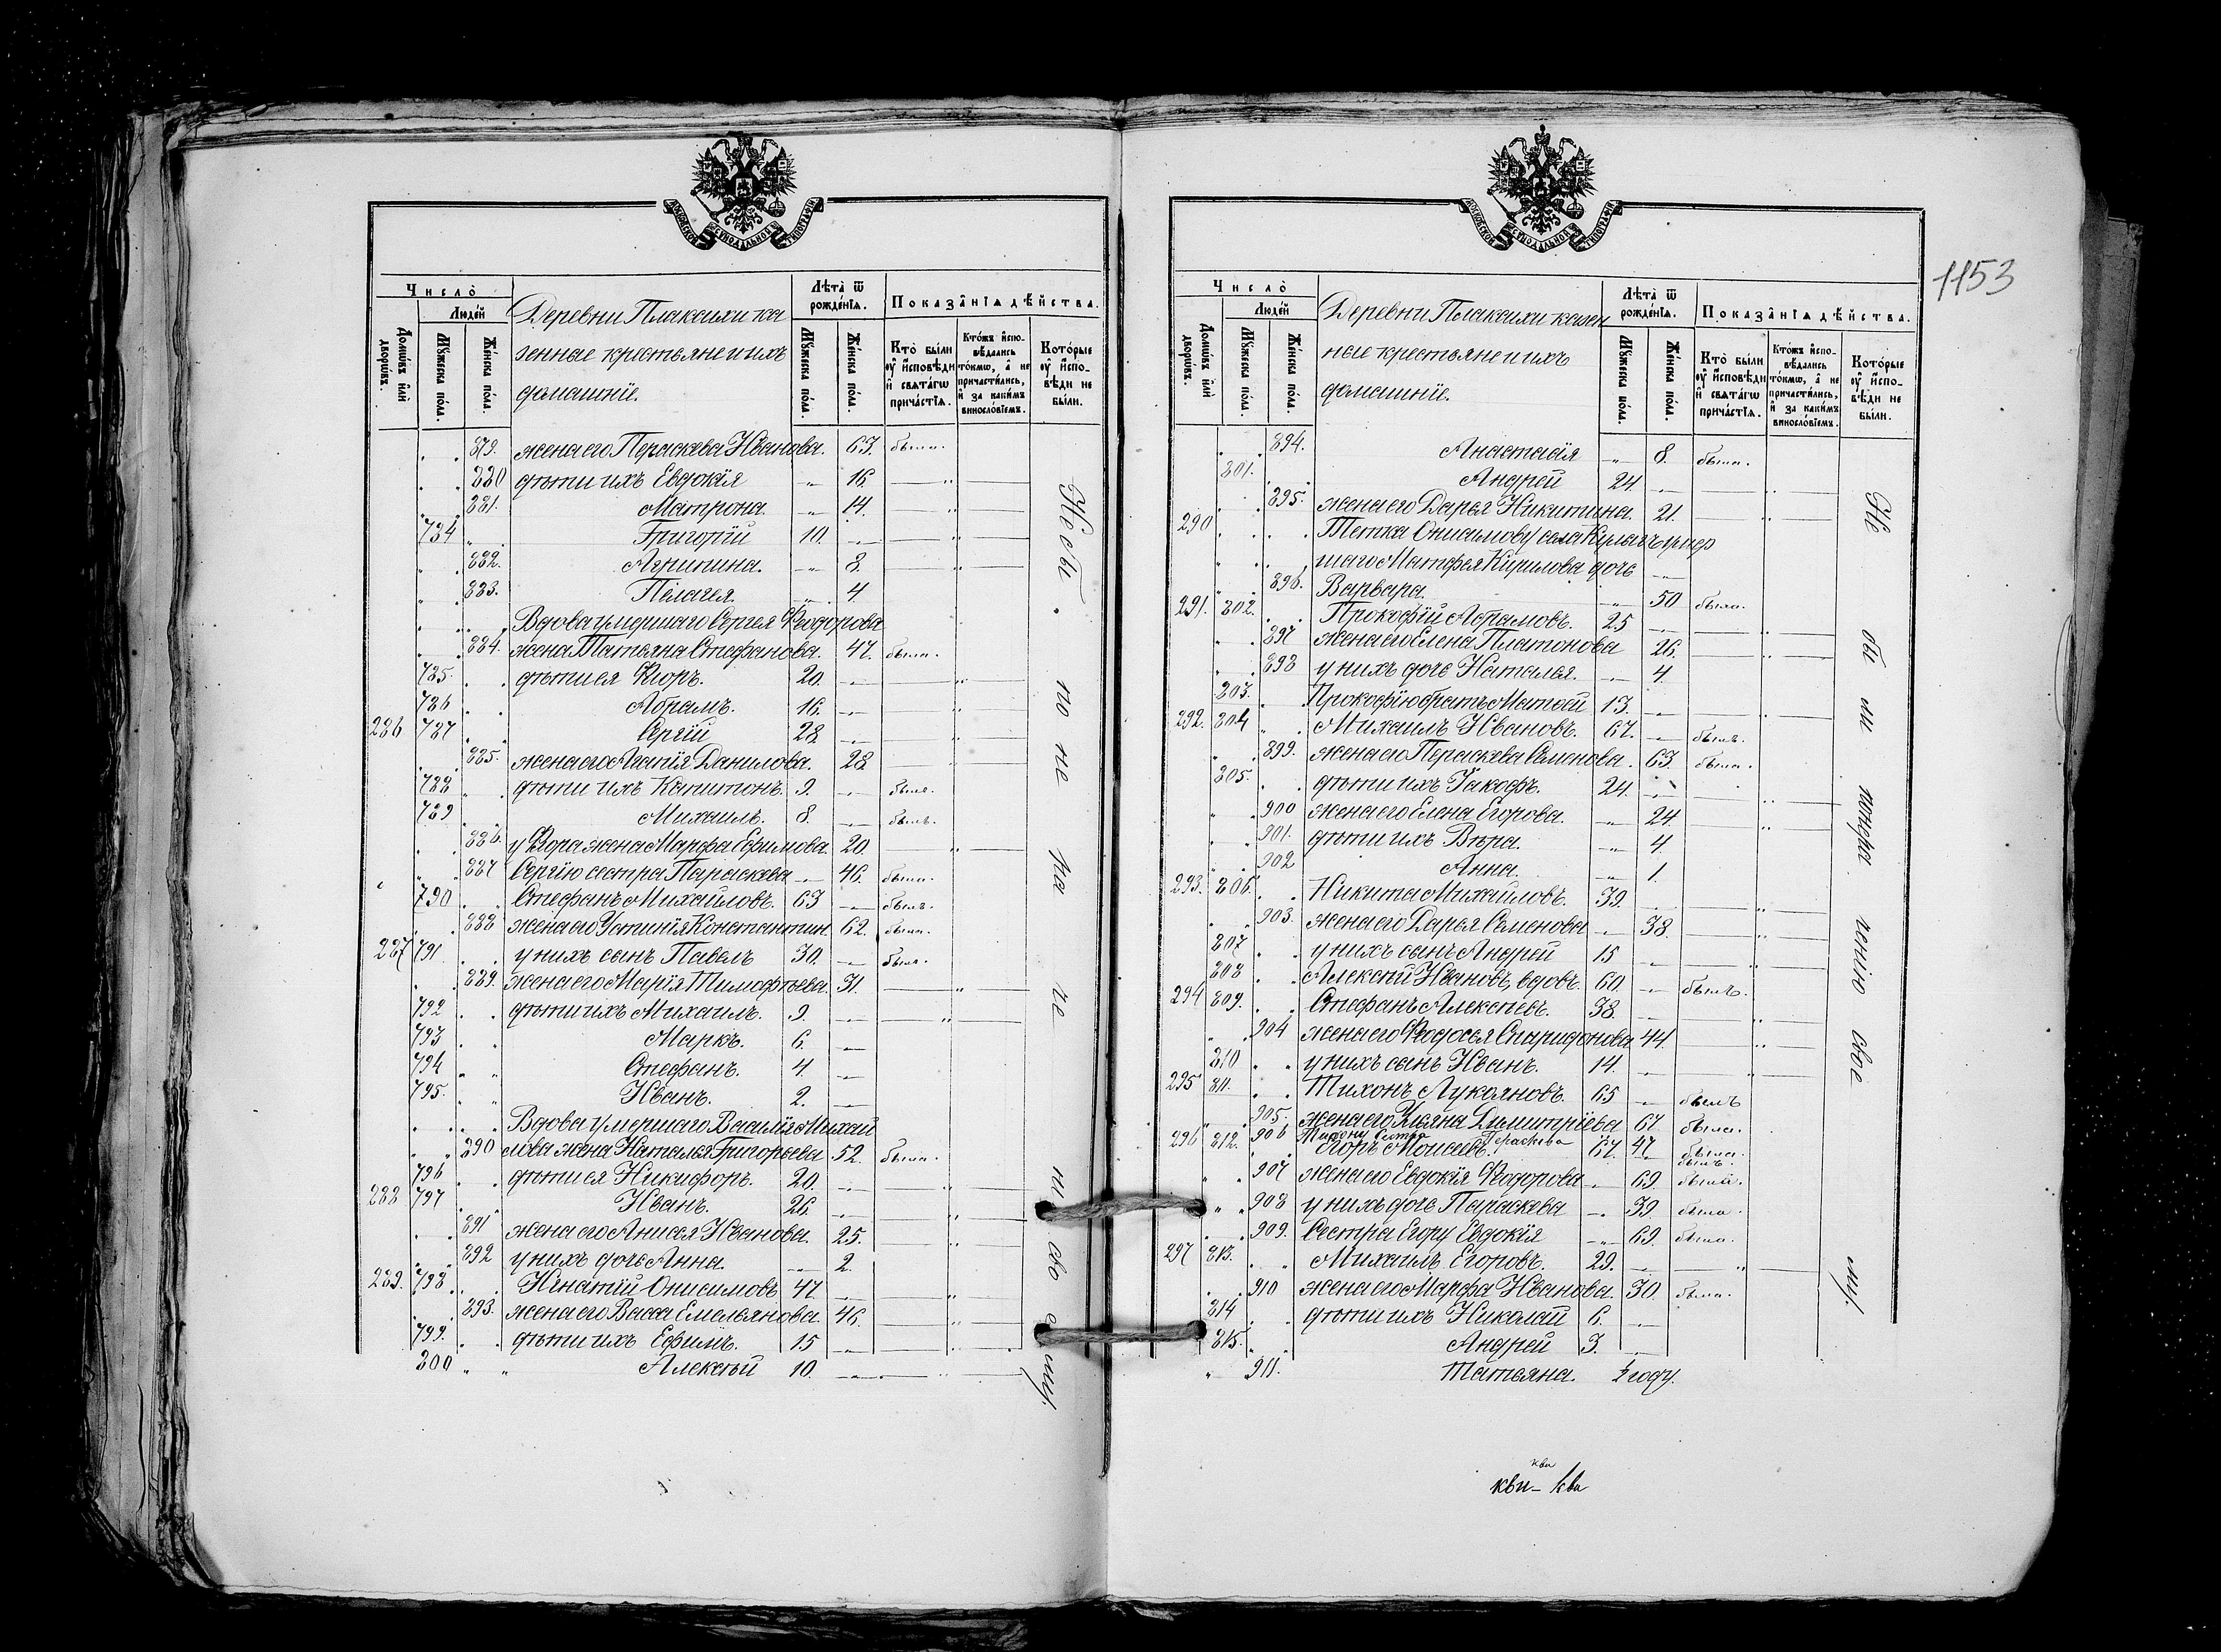 МОСКОВСКОЙ СѴНОДАЛЬНОЙ ТИПОГРАФІИ
Число̀
Людей
Домѡвъ и҆лѝ дворѡвъ.
Мꙋжеска по́ла.
Же́нска по́ла.
Деревни Плаксихи ка
зенные крестьяне и ихъ
домашніе.
Лѣта̀ ѿ рожде́нїѧ.
Мꙋжеска по́ла.
Же́нска по́ла.
Показа̑нїѧ дѣ́йства.
Кто̀ бы́ли оу҆ и҆сповѣди и҆ свѧта́гѡ прича́стїѧ.
Кто́жъ и҆спо-вѣдались то́кмѡ, а҆ не причасти́лись, и҆ за каки́мъ винослóвїемъ.
Кото́рые оу҆ и҆спо-вѣди не бы́ли.
879. жена его Параскева Иванова. 63. была.
880 дѣти ихъ Евдокія " 16. "
881. Матрона. " 14. "
784 Григорій 10. "
882. Агрипина. " 8. "
883. Пелагея. " 4.
Вдова умершаго Сергея Ѳеодорова
884. жена Татьяна Стефанова. 47. была.
785. дѣти ея Ѳлоръ. 20. "
786 Абрамъ. 16. "
286 787 Сергій 28 "
885. жена его Агапія Данилова. 28
788 дѣти ихъ Капитонъ. 9. былъ.
789 Михаилъ. 8. былъ.
886. у Флора жена Марфа Ефимова. 20. "
887 Сергію сестра Параскева 46. была.
790 Стефанъ Михайловъ. 63 былъ.
888 жена его Устинія Константин. 62. была.
287 791 у нихъ сынъ Павелъ 30. былъ.
889. жена его Марія Тимофѣева. 31. "
792 дѣти ихъ Михаилъ. 9. "
793 Маркъ. 6.
794 Стефанъ. 4.
795. Иванъ. 2.
Вдова умершаго Василія Михай
890 лова жена Наталья Григорьева 52. была.
796 дѣти ея Никифоръ. 20. "
288 797 Иванъ. 26. "
891 жена его Анисья Иванова. 25. "
892 у нихъ дочь Анна. 2.
289. 798 Игнатій Онисимовъ 47 "
893. жена его Васса Емельянова. 46. "
799. дѣти ихъ Ефимъ. 15 "
800 Алексѣй 10. "
Не бы
по не
ра
че
ні
сво
ему.
1153
МОСКОВСКОЙ СѴНОДАЛЬНОЙ ТИПОГРАФІИ
Число̀
Людей
Домѡвъ и҆лѝ дворѡвъ.
Мꙋжеска по́ла.
Же́нска по́ла.
Деревни Плаксихи казен
ные крестьяне и ихъ
домашніе.
Лѣта̀ ѿ рожде́нїѧ.
Мꙋжеска по́ла.
Же́нска по́ла.
Показа̑нїѧ дѣ́йства.
Кто̀ бы́ли оу҆ и҆сповѣди и҆ свѧта́гѡ прича́стїѧ.
Кто́жъ и҆спо-вѣдались то́кмѡ, а҆ не причасти́лись, и҆ за каки́мъ винослóвїемъ.
Кото́рые оу҆ и҆спо-вѣди не бы́ли.
894. Анастасія " 8. была.
801. Андрей 24. "
895. жена его Дарья Никитина. 21. "
290 Тетка Онисимову села умер
шаго Матфея Кирилова дочь
896. Варвара. " 50 была.
291. 802. Прокофій Абрамовъ. 25 "
897 жена его Елена Платонова 26. "
898 у нихъ дочь Наталья. 4. "
803. Прокофію братъ Матвѣй 13. "
292. 804 Михаилъ Ивановъ. 67. былъ.
899. жена его Параскева Семенова. 63. была.
805. дѣти ихъ Іаковъ. 24. "
900 жена его Елена Егорова. " 24. "
901. дѣти ихъ Вѣра. " 4.
902 Анна. " 1.
293. 806. Никита Михайловъ. 39. "
903. жена его Дарья Семенова 38. "
807 у нихъ сынъ Андрей 15 "
808 Алексѣй Ивановъ, вдовъ. 60. былъ.
294 809. Стефанъ Алексѣевъ. 38. "
904 жена его Ѳеодосья Спиридонова 44. "
810 у нихъ сынъ Иванъ. 14. "
295 811. Тихонъ Лукояновъ. 65 былъ
905. жена его Ульяна Димитріева 67. была.
906 Тихону сестра Параскева 47 была.
296 812. Егоръ Моисеевъ. 67. былъ.
907 жена его Евдокія Ѳеодорова 69. была.
908 у нихъ дочь Параскева 39 была.
909. Сестра Егору Евдокія 69. была.
297 813. Михаилъ Егоровъ. 29. "
910 жена его Марфа Иванова. 30. была.
814 дѣти ихъ Николай 6.
815. Андрей 3.
911. Татьяна. ½ году.
Не
бы
ли
попера
ченію
сво
ему.
ква
кви- ква